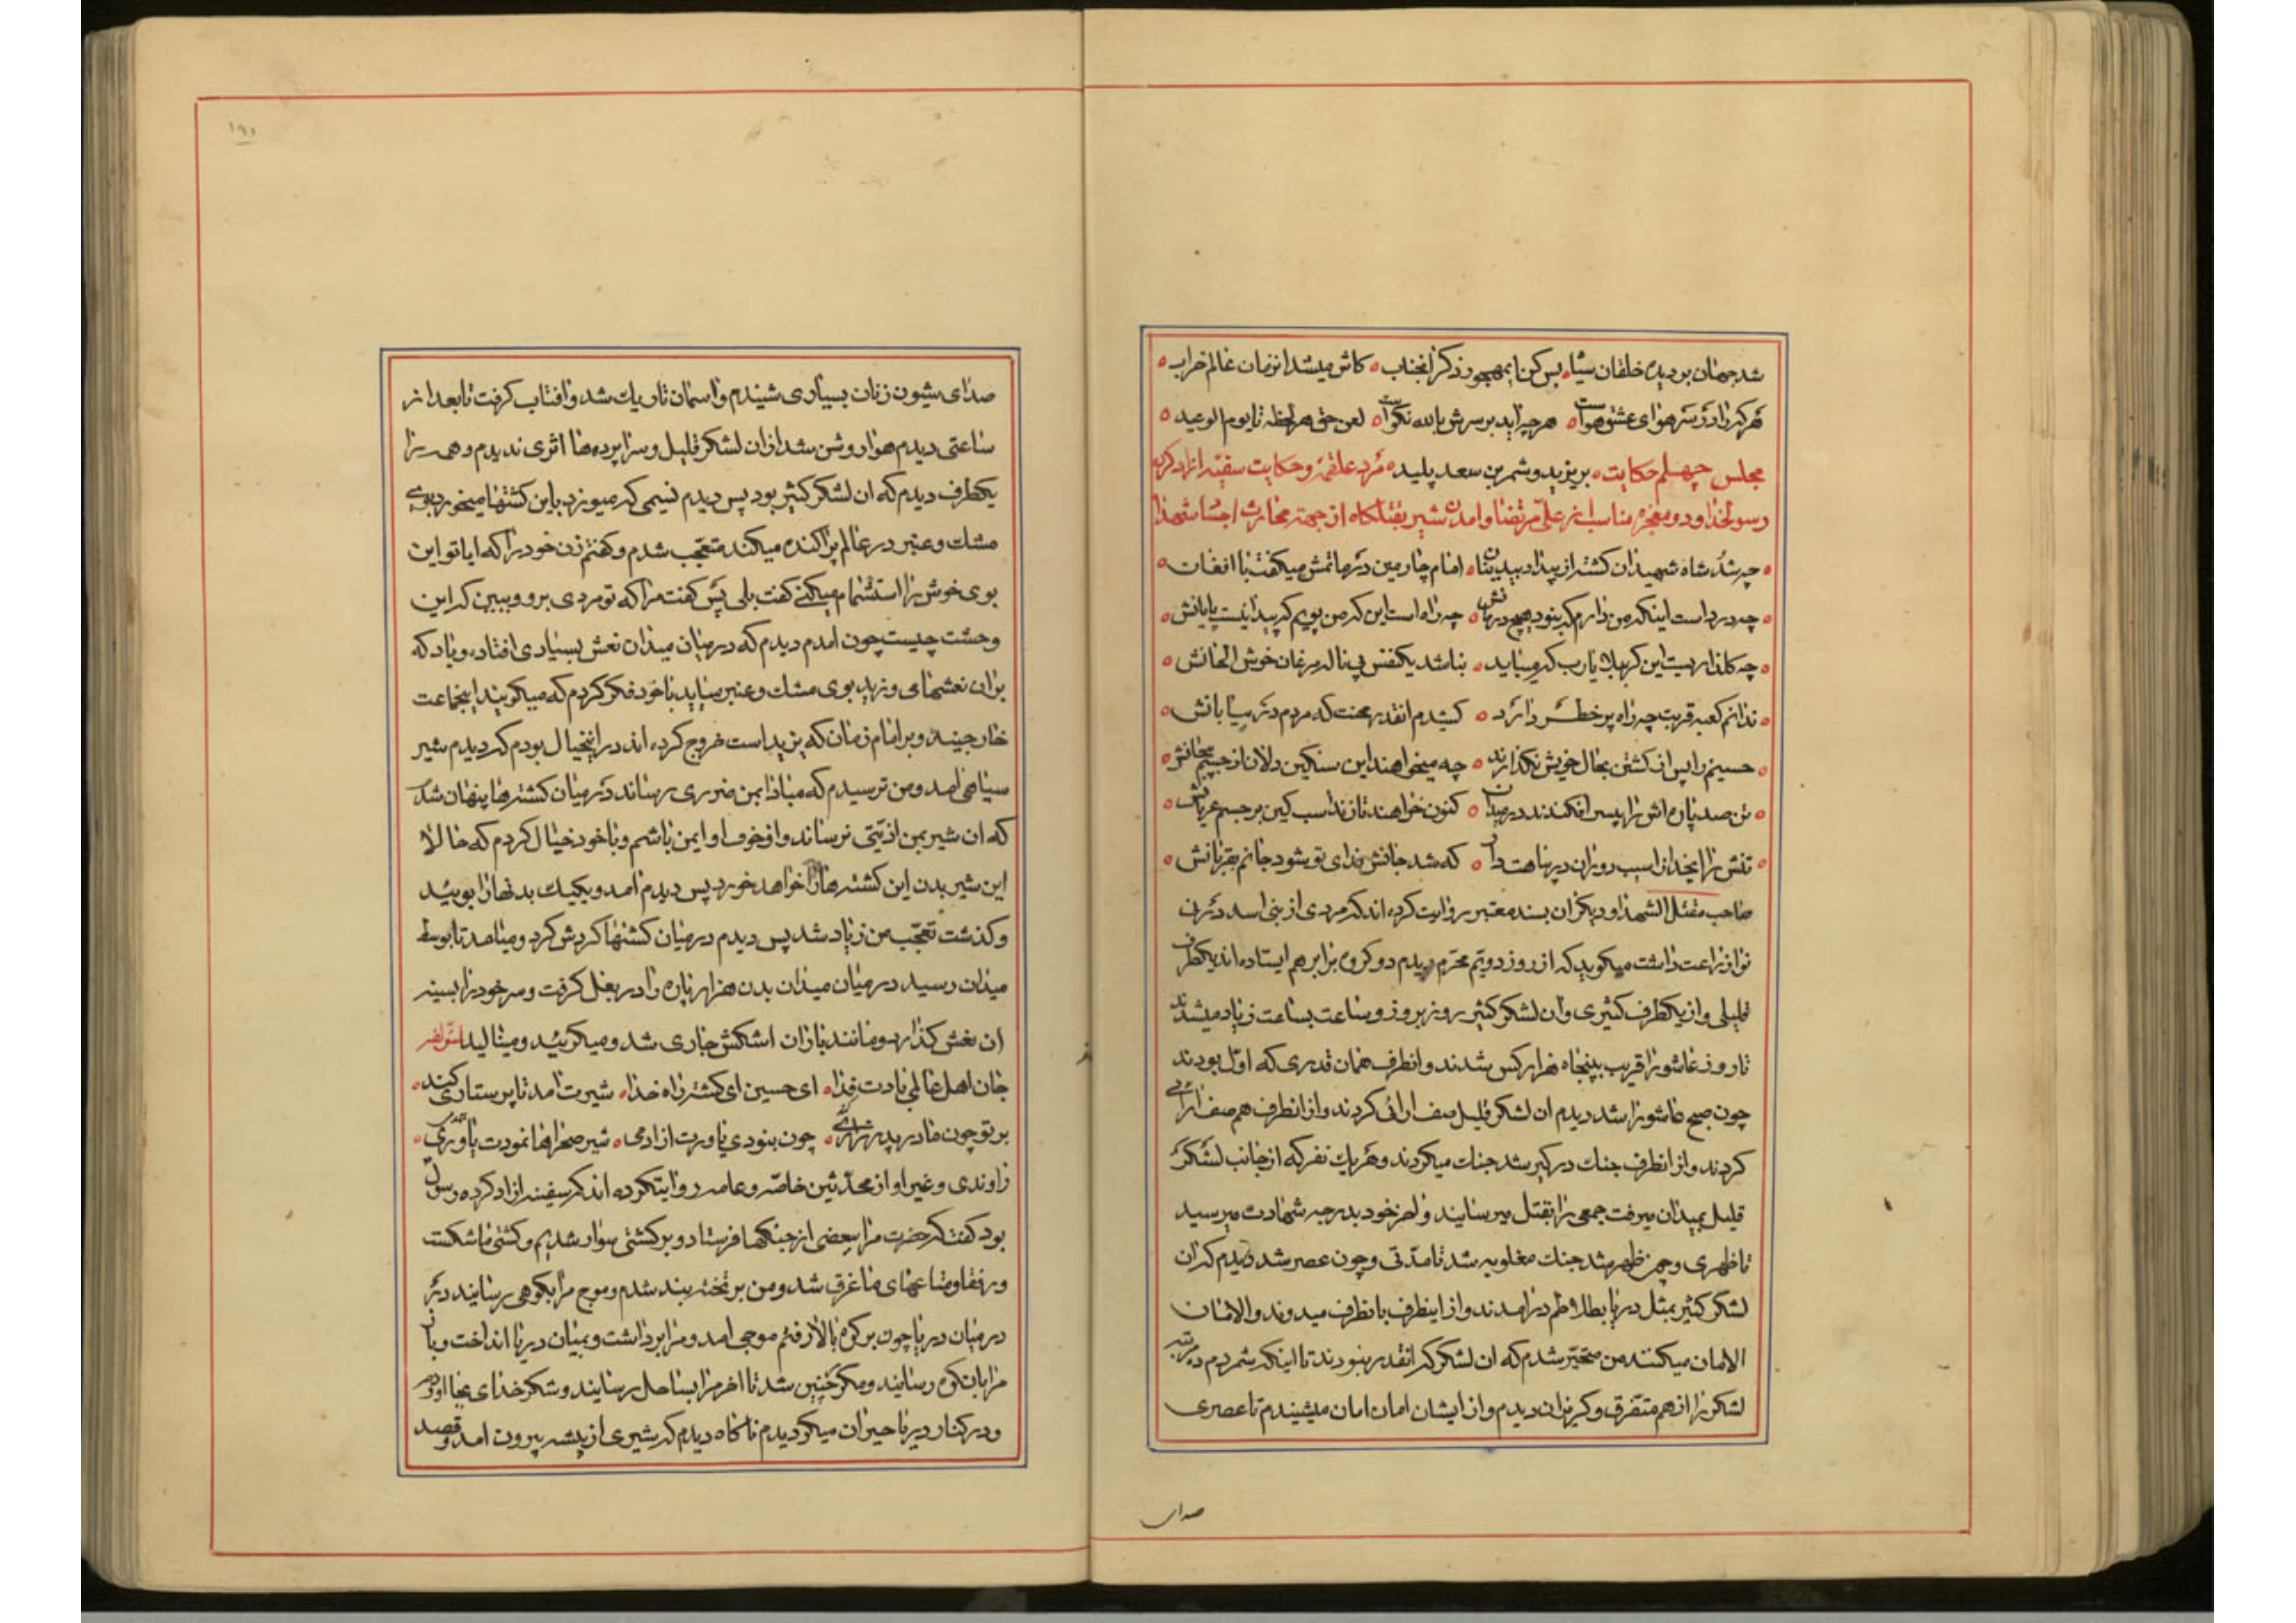 شد جهان بر دیده خلقان سیاه بس کن ای مهجور ذکر انجناب کاش میشد انزمان عالم خراب
هر که را در سر هوای عشق هواست هر چه اید بر سرش بالله نکواست لعن حق هر لحظه تا یوم الوعید
مجلس چهلم حکایت بر یزید و شمر بن سعد پلید مرد علقمه و حکایت سفینه ازاد کرده
رسولخدا و دو معجزه مناسب از علی مرتضا و امدن شیر بقتلکاه از جهة محارث اجساد شهدا
چه شد شاه شهیدان کشته از بیداد بیدینان امام چارمین در ماتمش میکفت با افغان
چه درد است اینکه من دارم که نبود هیچ درمانش چه راه است این که من پویم که پیدا نیست پایانش
چه کلذاریست این کربلا یارب که میناید نباشد یکنفس بی ناله مرغان خوش الحانش
ندانم کعبه قربت چه راه پر خطر دارد کشیدم انقدر محنت که مردم در بیابانش
حسینم را پس از کشتن بحال خویش نکذارند چه میخواهند این سنکین دلان از جسم بیجانش
تن صد پاره اش را پس افکندند در میدان کنون خواهند تازند اسب کین بر جسم عریانش
تنش را ایخدا از اسب دوزان در پناهت دار که شد جانش فدای تو شود جانم بقربانش
صاحب مقتل الشهدا و دیکران بسند معتبر روایت کرده اند که مردی از بنی اسد در ان
نواز زراعت داشت میکوید که از روز دویم محرم دیدم دو کروه برابر هم ایستاده اند یکطرف
قلیلی و از یکطرف کثیری و ان لشکر کثیر روز بروز و ساعت بساعت زیاد میشدند
تا روز عاشورا قریب بپنجاه هزار کس شدند و انطرف همان قدری که اول بودند
چون صبح عاشورا شد دیدم ان لشکر قلیل صف ارائی کردند و از انطرف هم صف ارائی
کردند و از انطرف جنك در کیر شد جنك میکردند و هر یك نفر که از جانب لشکر
قلیل بمیدان میرفت جمعی را بقتل میرسانیند و اخر خود بدرجه شهادت میرسید
تا ظهری و چون ظهر شد جنك مغلوبه شد تا مدتی و چون عصر شد دیدم که ان
لشکر کثیر بمثل دریا بطلاطم درامدند و از اینطرف بانطرف میدوند و الامان
الامان میکنند من متحیر شدم که ان لشکر که انقدر نبودند تا اینکه شمردم ده مرتبه
لشکر را از هم متفرق و کریزان دیدم و از ایشان امان امان میشنیدم تا عصری
صدای
۱۹۱
صدای شیون زنان بسیاری شنیدم و اسمان تاریك شد و افتاب کرفت تا بعد از
ساعتی دیدم هوا روشن شد از ان لشکر قلیل و سرا پرده ها اثری ندیدم و همه را
یکطرف دیدم که ان لشکر کثیر بود پس دیدم نسیمی که میوزد باین کشتها میخورد بوی
مشك و عنبر در عالم پراکنده میکند متعجب شدم و کفتم زن خود را که ایا تو این
بوی خوش را استشمام میکنی کفت بلی پس کفت مرا که تو مردی برو و ببین که این
وحشت چیست چون امدم دیدم که در میان میدان نعش بسیاری افتاده و باد که
بران نعشهای وزید بوی مشك و عنبر میاید با خود فکر کردم که میکویند اینجماعت
خارجیند و بر امام زمان که یزید است خروج کرده اند در اینخیال بودم که دیدم شیر
سیاهی امد و من ترسیدم که مبادا بمن ضرری رساند در میان کشته ها پنهان شد
که ان شیر بمن اذیتی نرساند و از خوف او ایمن باشم و با خود خیال کردم که حالا
این شیر بدن این کشته ها را خواهد خورد پس دیدم امد و یکیك بدنها را بوئید
و کذشت تعجب من زیاد شد پس دیدم در میان کشتها کردش کرد و میامد تا بوسط
میدان رسید در میان میدان بدن هزار پاره را در بغل کرفت و سر خود را بسینه
ان نعش کذارد و مانند باران اشکش جاری شد و میکرئید و مینالید
جان اهل عالمی بادت فدا ای حسین ای کشته راه خدا شیرت امد تا پرستاری کند
بر تو چون مادر پدر زاری کند چون نبودی یاورت از ادمی شیر صحراها نمودت یاوری
راوندی و غیر او از محدثین خاصه و عامه روایتکرده اند که سفینه ازاد کرده رسول
بود کفت که حضرت مرا ببعضی از جنکها فرستاد و بر کشتی سوار شدیم و کشتی ما شکست
و رفقا و متاعهای ما غرق شد و من بر تخته بند شدم و موج مرا بکوهی رسانیند در
در میان دریا چون بر کوه بالا رفتم موجی امد و مرا برداشت و بمیان دریا انداخت و باز
مرا بان کوه رسانیند و مکرر چنین شد تا اخر مرا بساحل رسانیند و شکر خدای بجا اوردم
و در کنار دریا حیران میکردیدم ناکاه دیدم که شیری از بیشه بیرون امد و قصد